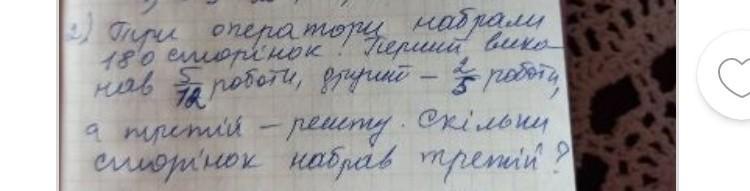 2) Три оператори набрали
180 сторінок. Перший вико
нав 5/12 роботи, другий – 2/5 роботи,
а третій – решту. Скільки
сторінок набрав третій?